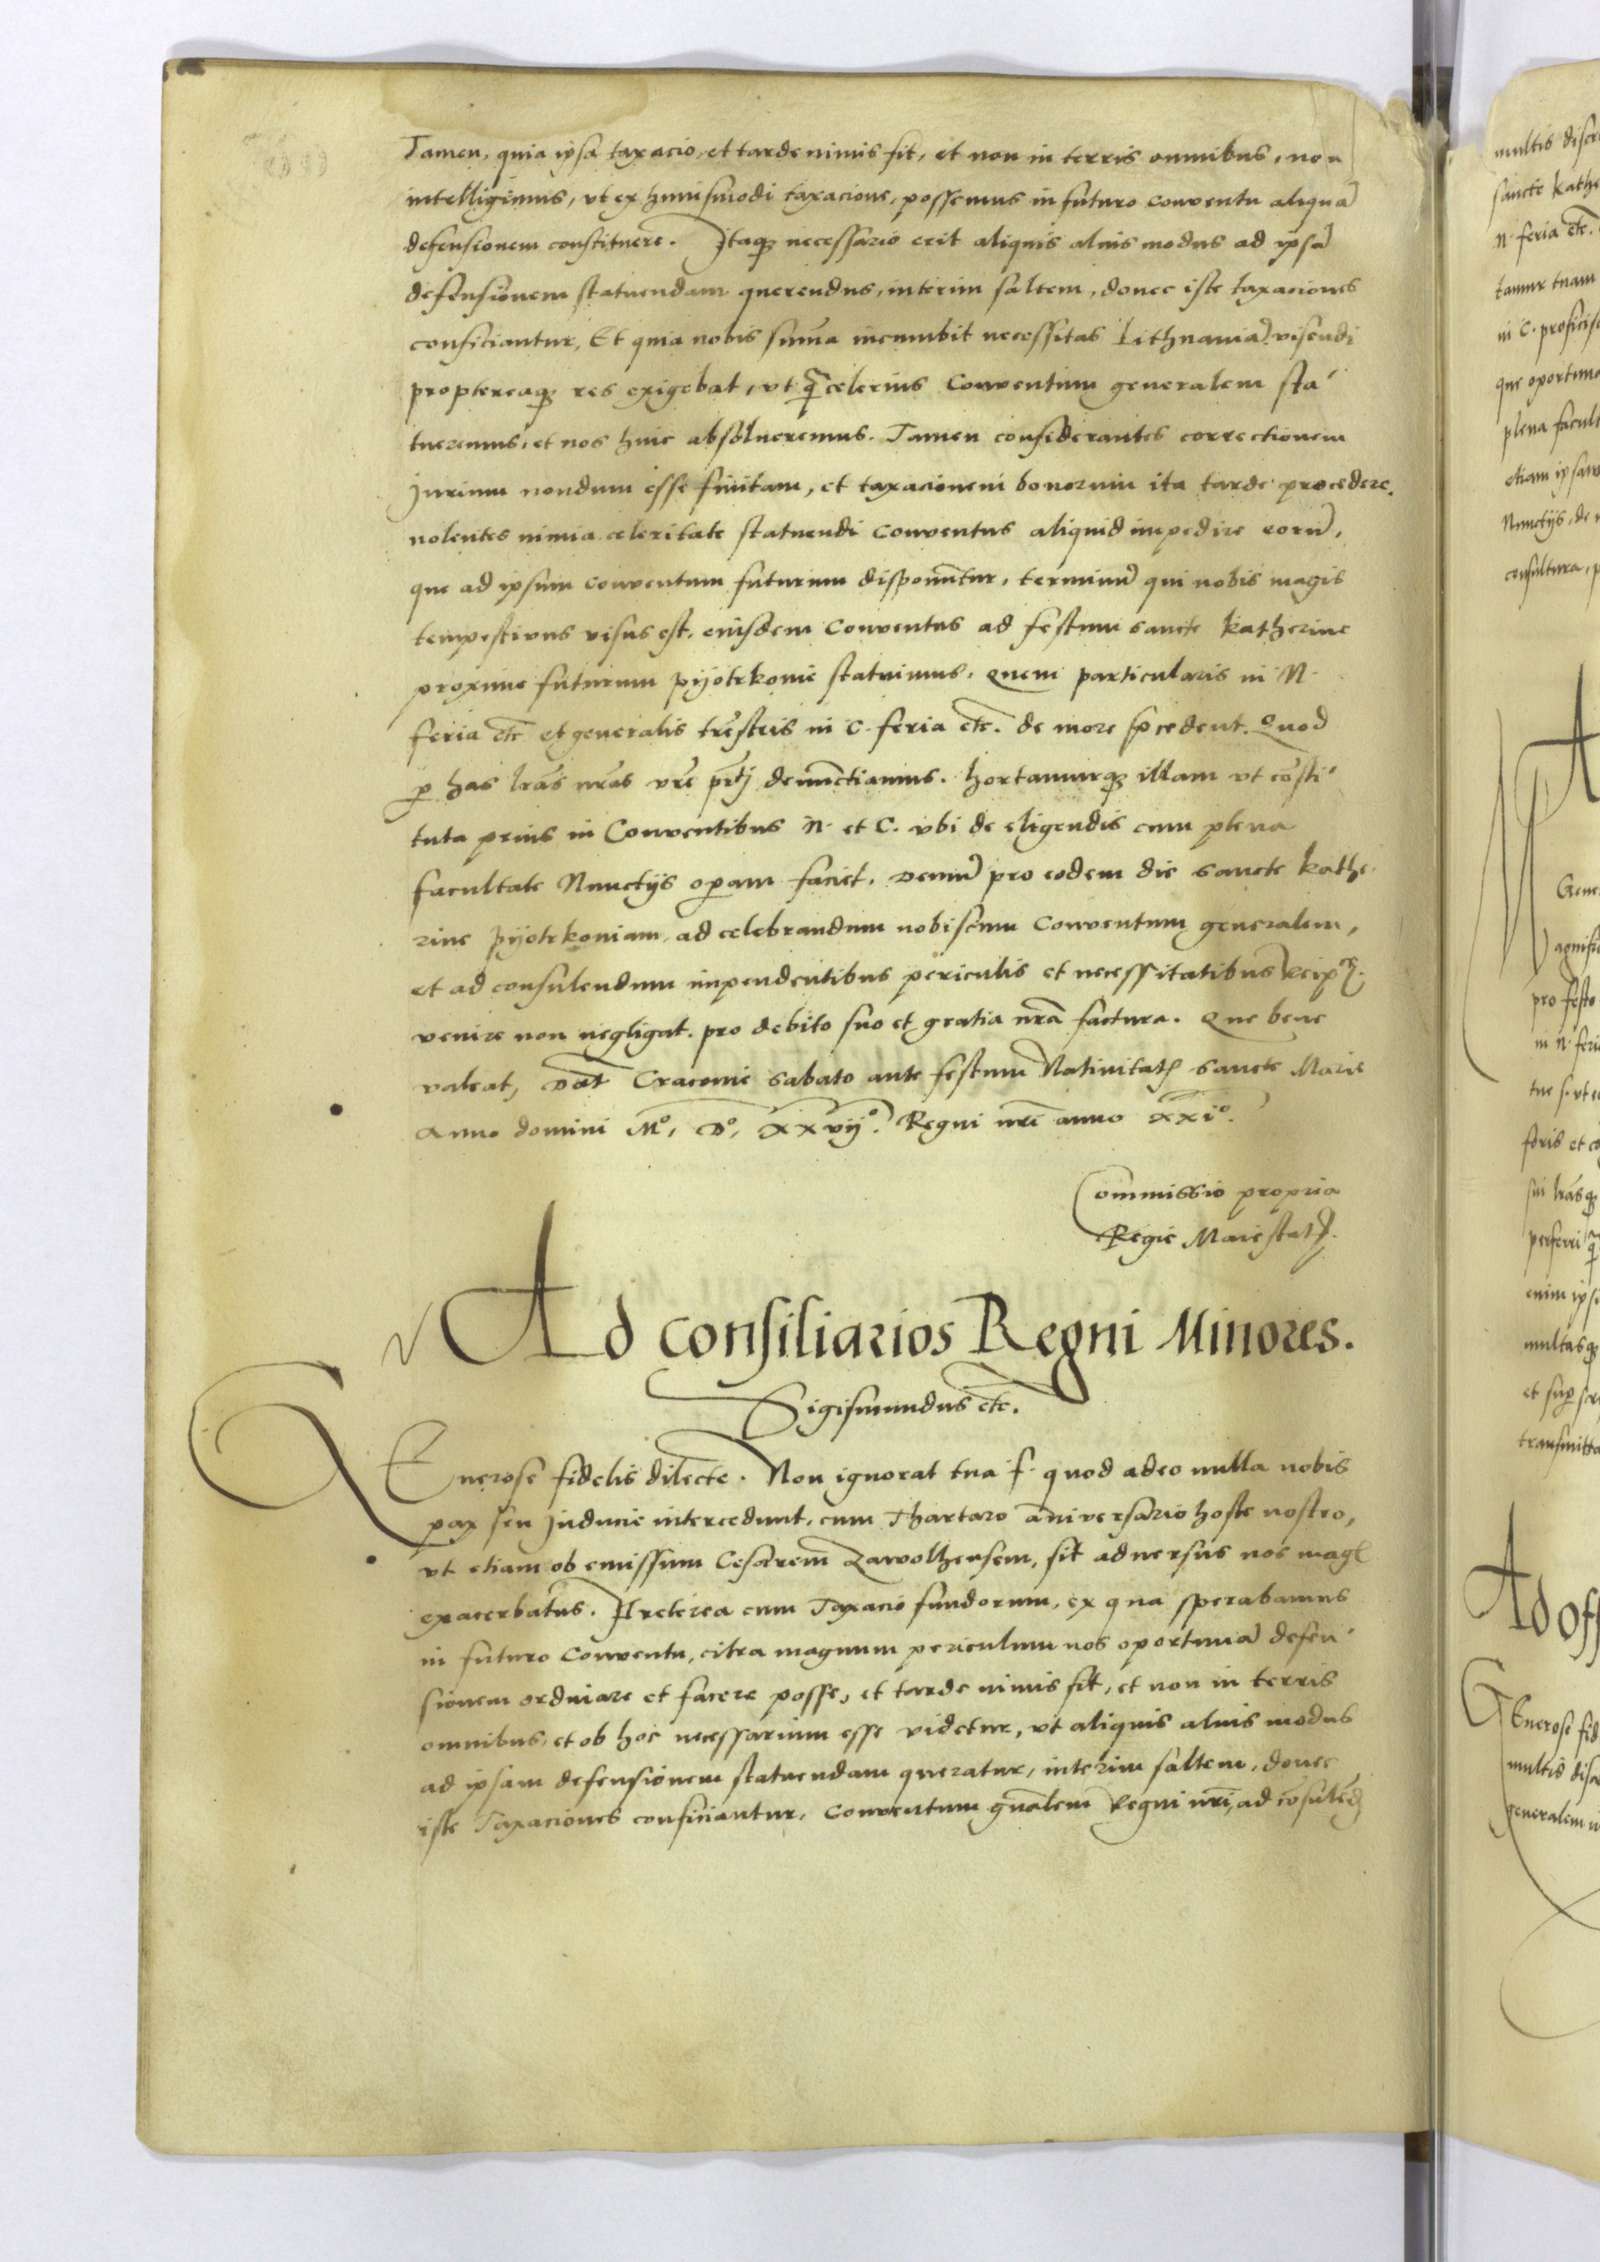 Tamen, quia ipsa taxacio, et tarde nimis fit, et non in terris omnibus, non
intelligimus, vt ex huiusmodi taxacione, possemus in futuro conventu aliquā
defensionem constituere. Itaq₃ necessario erit aliquis alius modus ad ipsā
defensionem statuendam querendus, interim saltem, donec iste taxaciones
conficiantur, Et quia nobis summa incumbit necessitas Lithuaniā visendi
proptereaq₃ res exigebat, vt q̄ celerius Conventum generalem sta
tueremus, et nos huic absolueremus. Tamen considerantes correctionem
Jurium nondum esse finitam, et taxacionem bonorum ita tarde procedere,
nolentes nimia celeritate statuendi Conventus aliquid impedire eorū,
que ad ipsum conventum futurum disponūtur, terminū qui nobis magis
tempestivus visus est, eiusdem Conventus ad festum sancte Katherine
proxime futurum pijotrkovie statuimus. Quem particularis in N.
feria etc̄ et generalis trēstris in C. feria etc̄. de more p̄cedent. Quod
ꝑ has lrās nrās vrē prtj denūctiamus. hortamurq₃ illam vt cōsti
tuta prius in Conventibus N. et C. vbi de eligendis cum plena
facultate Nunctijs operam faciet, demū pro eodem die sancte Kathe
rine pijotrkoviam, ad celebrandum nobiscum Conventum generalem,
et ad consulendum impendentibus periculis et necessitatibus Reip.
venire non negligat. pro debito suo et gratia nrā factura. Que bene
valeat, Dat̄ Cracovie sabato ante festum Nativitatꝭ sancte Marie
Anno domini Mº, Dº, XXvijº. Regni nrī anno XXiº.
Commissio propria
Regie Maiestatꝭ.
Ad Consiliarios Regni Minores.
Sigismundus etc̄.
GEnerose fidelis dilecte. Non ignorat tua f. quod adeo nulla nobis
pax seu Inducie intercedunt, cum Thartaro āniversario hoste nostro,
vt etiam ob emissum Cesarem Zavolhensem, sit adversus nos mag
exacerbatus. Preterea cum Taxacio fundorum, ex qua sperabamus
in futuro Conventu, citra magnum periculum nos oportunā defen
sionem ordinare et facere posse, et tarde nimis fit, et non in terris
omnibus, et ob hoc necessarium esse videtur, vt aliquis alius modus
ad ipsam defensionem statuendam queratur, interim saltem, donec
iste Taxaciones conficiantur, Conventum gnālem Regni nrī, ad cōsulēd